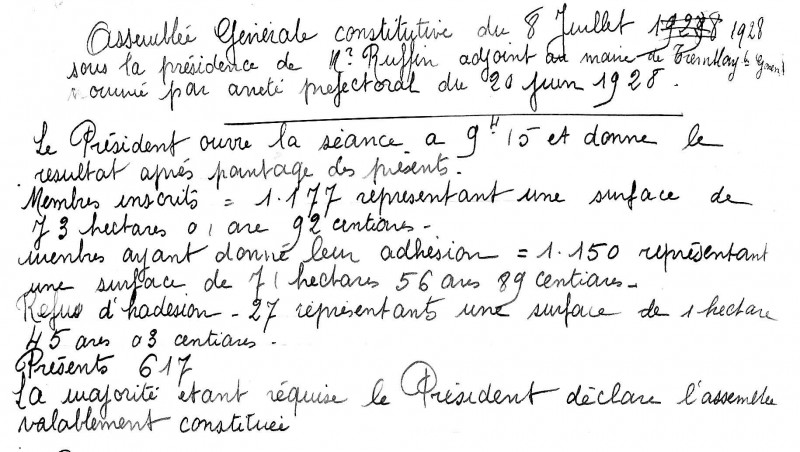 Assemblée Générale constitutive du 8 Juillet 1928 1928
sous la présidence de Mr Ruffin adjoint au maire de Tremblay les Gones
nommé par arreté prefectoral du 20 juin 1928.
Le Président ouvre la séance a 9H15 et donne le
resultat aprés pointage des présents.
Membres inscrits = 1.177 représentant une surface de
73 hectares 01 are 92 centiares.
membres ayant donné leur adhésion = 1.150 représentant
une surface de 71 hectares 56 ares 89 centiares.
Refus d'hadesion - 27 représentants une surface de 1 hectare
45 ares 03 centiares.
Présents 617
La majorité étant réquise le Président déclare l'assemblée
valablement constituée